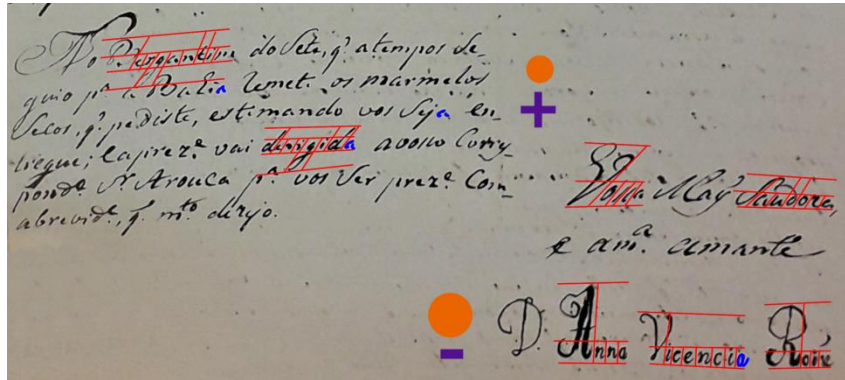 No Bergantim do Sete, q.^ atempos Se_
guio p.ª a Bahia os marmelos
Secos, q.^ pediste, estimando vos Seja en_
tregue; vai derigida avosso Corrys_
pond.e Sr. Arouca p.ª vos Ser prez.e Com_
abrevid.e, q. m.to dezejo.
Vossa May Saudoza,
e am.ª amante
D. Anna Vicencia Roiz